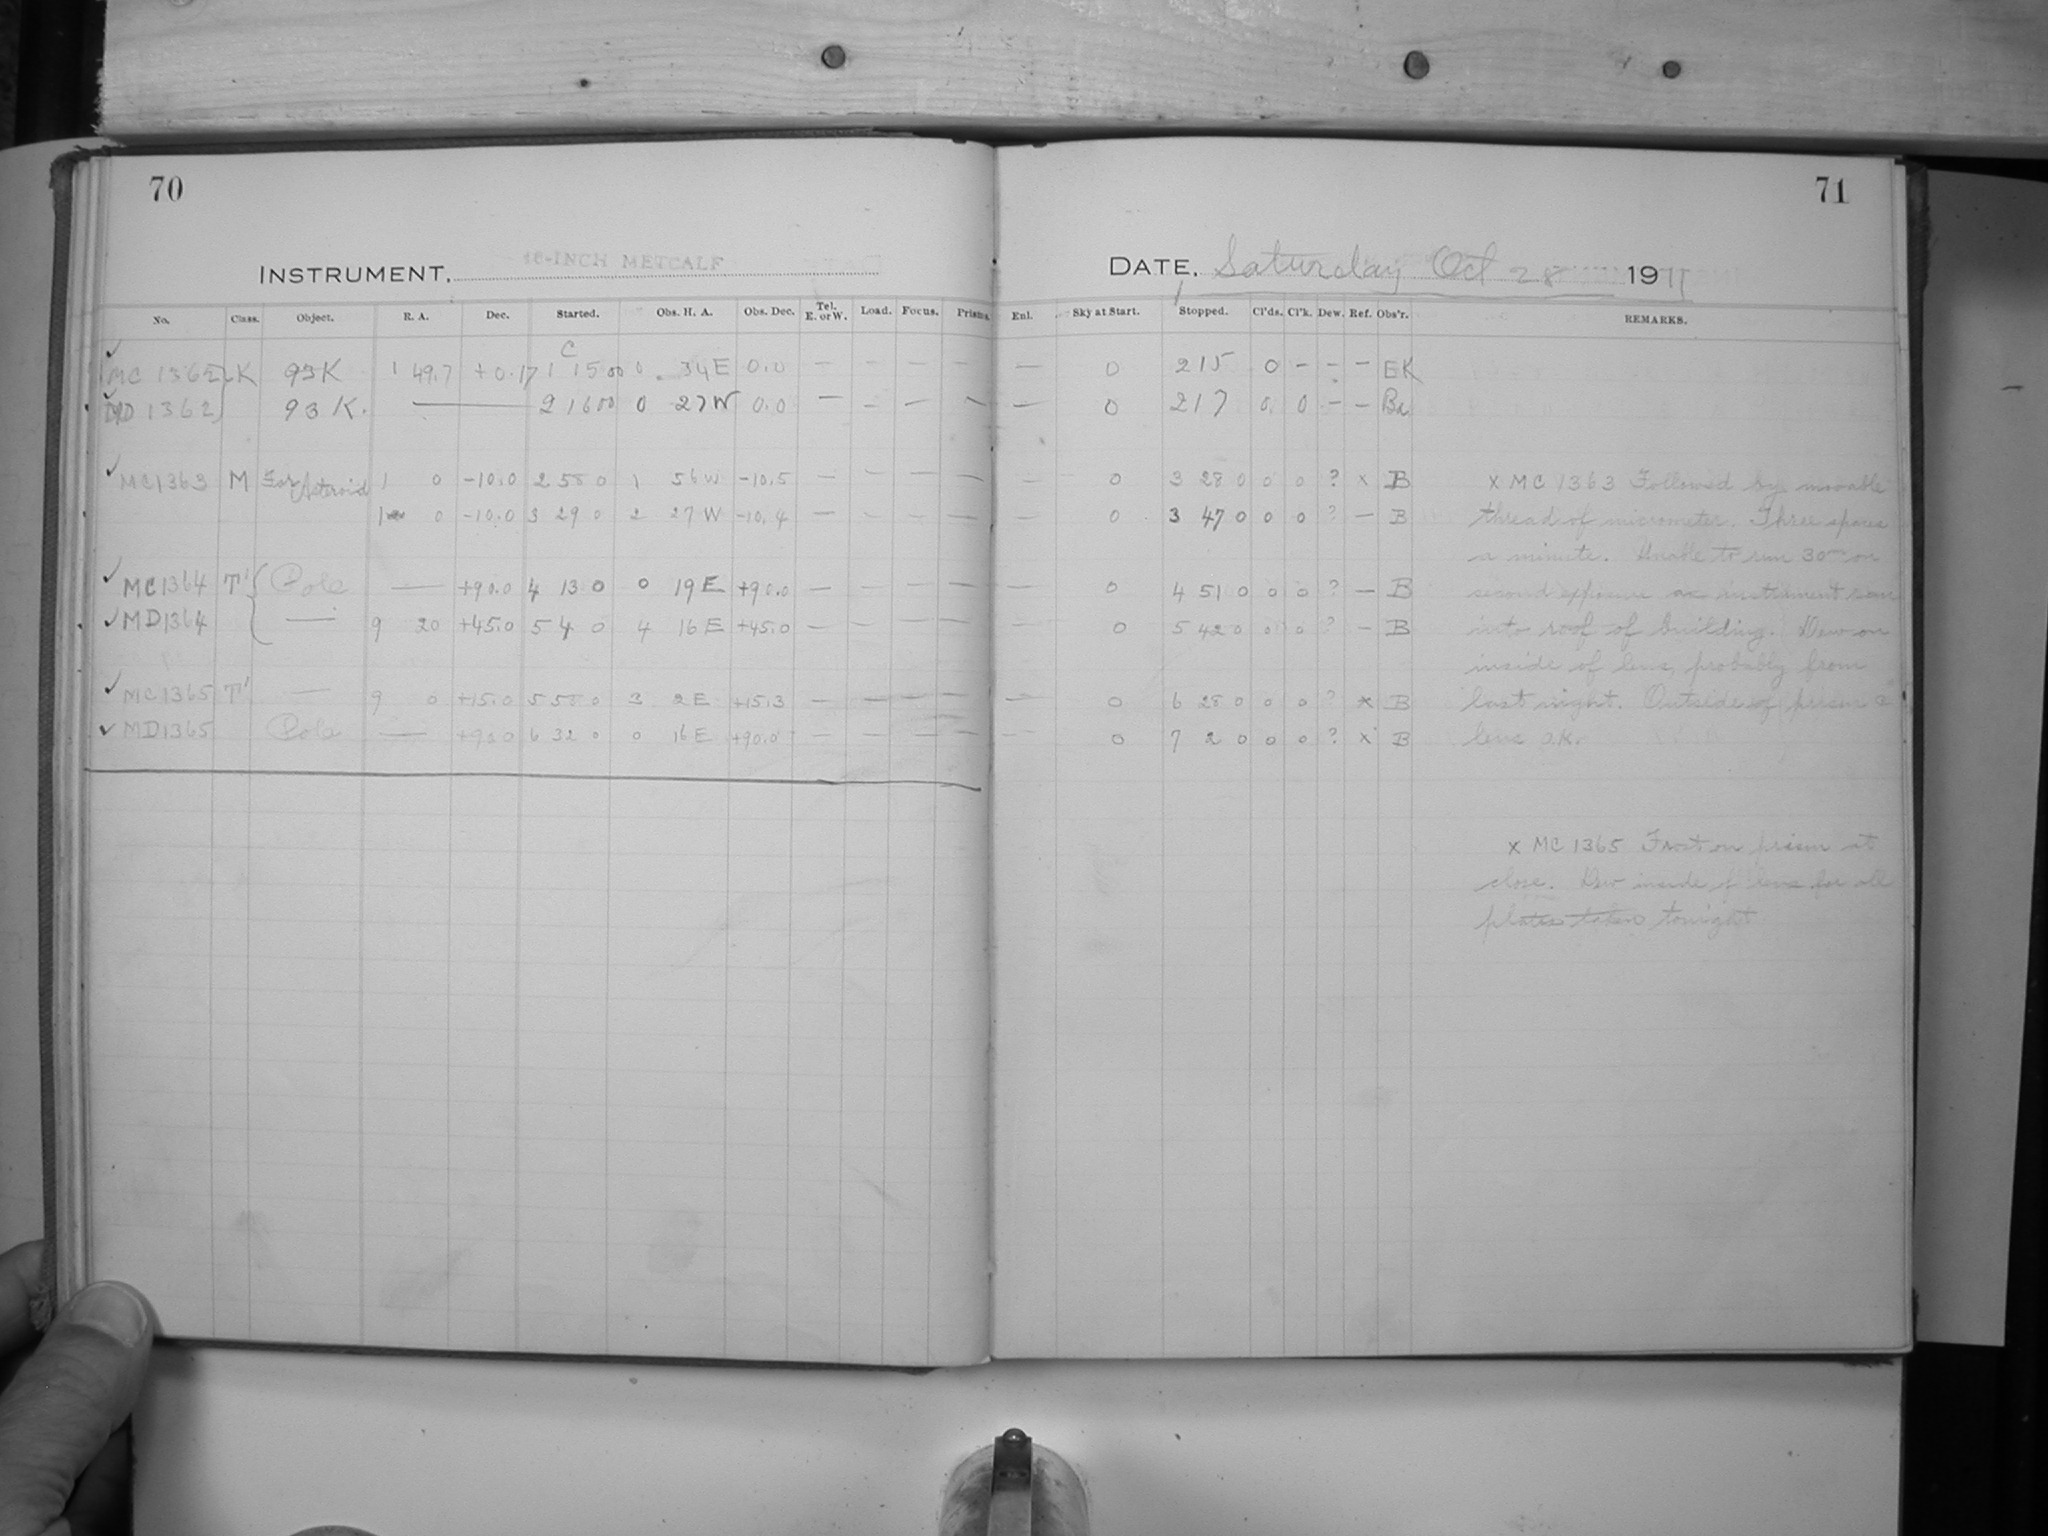 70
71
INSTRUMENT, 16-INCH METCALF
DATE, Saturday Oct 28 1911
No. Class. Object. R. A. Dec. Started. Obs. H. A. Obs. Dec. Tel. E. or W. Load. Focus. Prisms. Enl. Sky at Start. Stopped. Cl'ds. Cl'k. Dew. Ref. Obs'r. REMARKS.
C
MC 1362 K 93K 1 49.7 +0.17 1 15 00 0 34E 0.0 — — — — — 0 2 15 0 – – – EK
MD 1362 93 K. — 2 16 00 0 27W 0.0 — — — — — 0 2 17 0 0 – – Ba
MC1363 M For Asteroid 1 0 -10.0 2 58 0 1 56W -10.5 — — — — — 0 3 28 0 0 0 ? x B
1 0 -10.0 3 29 0 2 27W -10.4 — — — — — 0 3 47 0 0 0 ? — B
MC1364 T' { Pole — +90.0 4 13 0 0 19E +90.0 — — — — — 0 4 51 0 0 0 ? — B
MD1364 — 9 20 +45.0 5 4 0 4 16E +45.0 — — — — — 0 5 42 0 0 0 ? — B
MC1365 T' — 9 0 +15.0 5 58 0 3 2E +15.3 — — — — — 0 6 28 0 0 0 ? x B
MD1365 Pole — +90.0 6 32 0 0 16E +90.0 — — — — — 0 7 2 0 0 0 ? x B
x MC 1363 Followed by movable
thread of micrometer. Three spaces
a minute. Unable to run 30m on
second exposure as instrument ran
into roof of building. Dew on
inside of lens, probably from
last night. Outside of prism &
lens O.K.
x MC 1365 Frost on prism at
close. Dew inside of lens for all
plates taken tonight